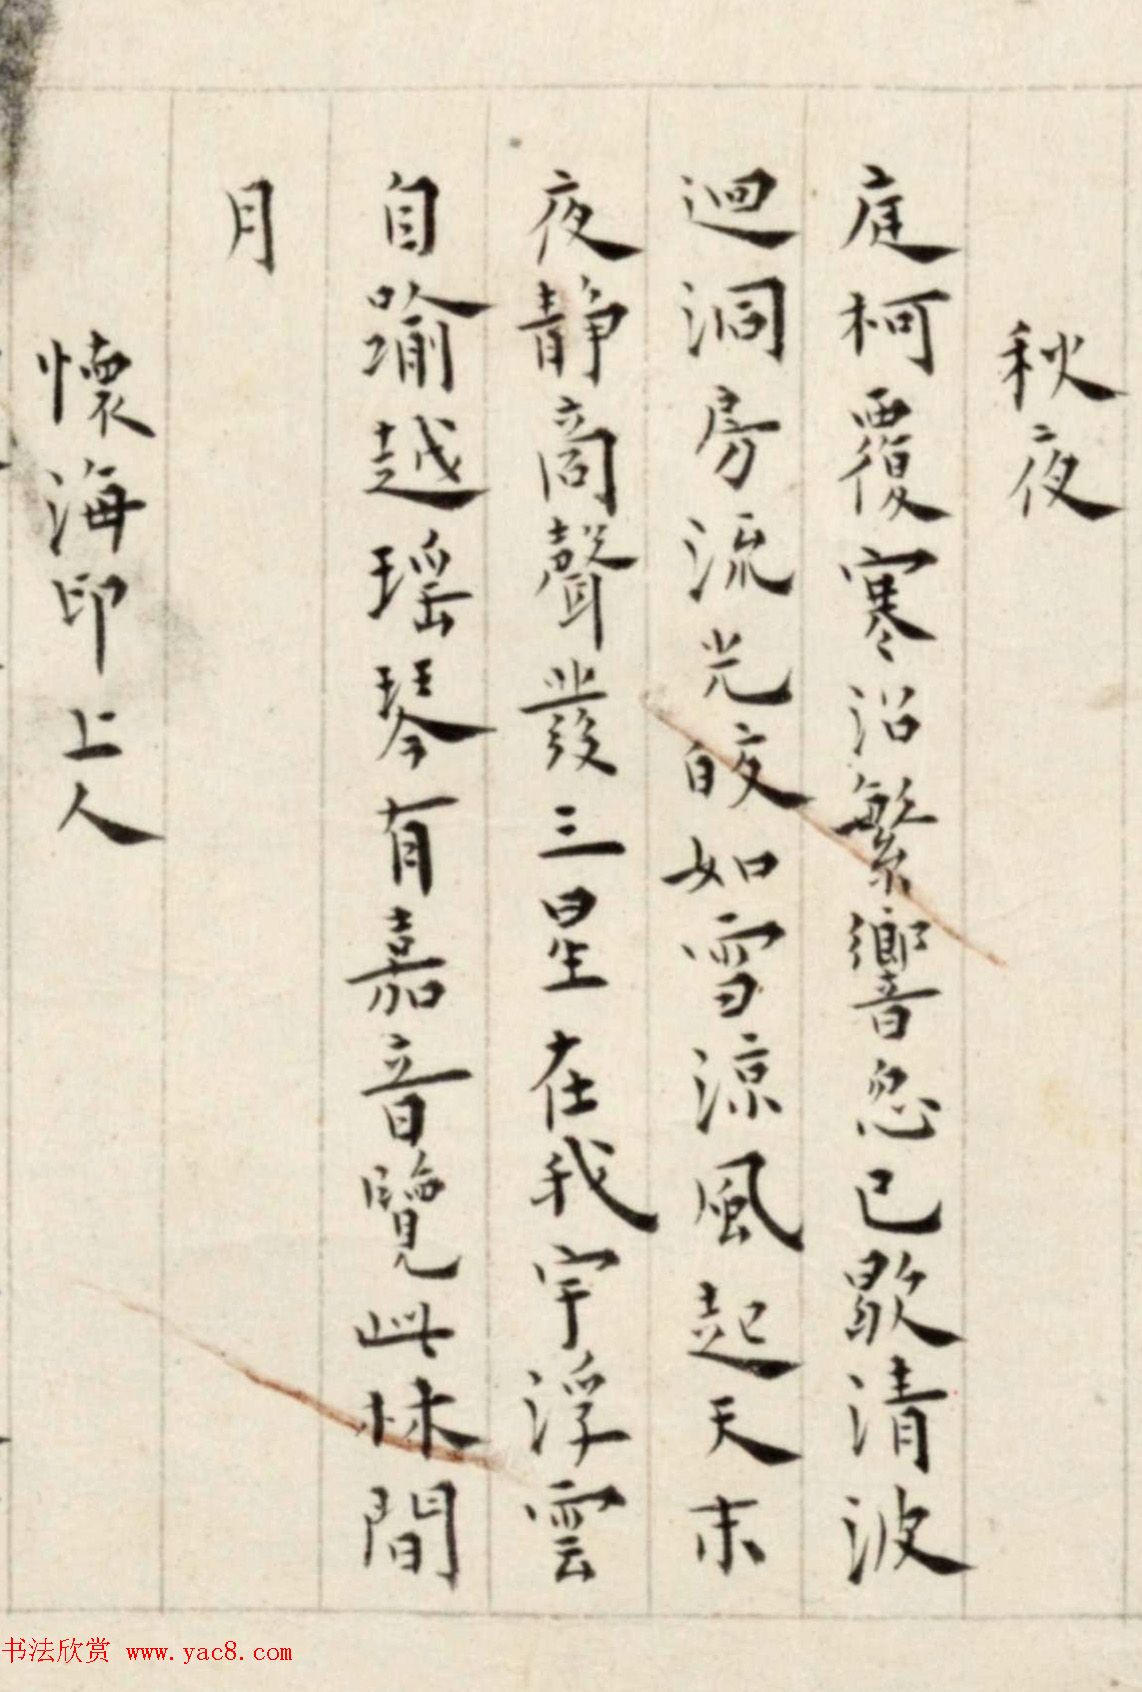 秋夜
庭柯覆寒沼繁響忽已歇清波
迴洞房流光皎如雪涼風起天末
夜静商聲發三星在我宇浮雲
自踰越瑶琴有嘉音覽此林間
月
懷海印上人
书法欣赏 www.yac8.com